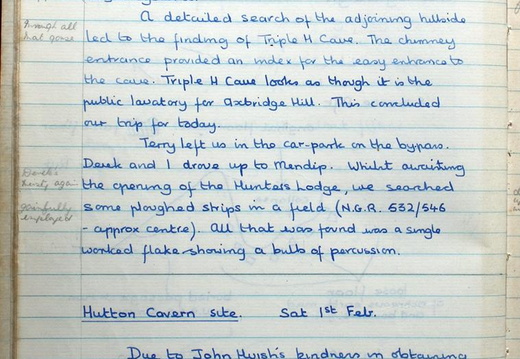 A detailed search of the adjoining hillside
led to the finding of Triple H Cave. The chimney
entrance provided an index for the easy entrance to
the cave. Triple H Cave looks as though it is the
public lavatory for Axbridge Hill. This concluded
our trip for today.
Terry left us in the car-park on the bypass.
Derek and I drove up to Mendip. Whilst awaiting
the opening of the Hunters Lodge, we searched
some ploughed strips in a field (N.G.R. 532/546
- approx centre). All that was found was a single
worked flake showing a bulb of percussion.
Hutton Cavern site. Sat 1st Feb.
Due to John Huish's kindness in obtaining
through all
that gorse
Derek's
thirsty again
gainfully
employed